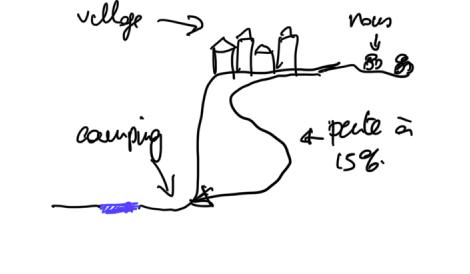 village
nous
camping
pente à
15%.